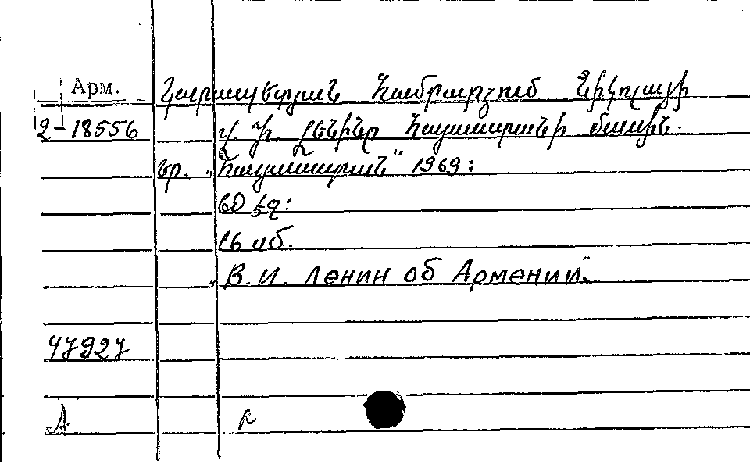 Арм. Կարապետյան Համբարձում Նիկոլայի
2-18556 Վ. Ի. Լենինը Հայաստանի մասին.
Եր. „Հայաստան" 1969:
60 էջ:
16 սմ.
„В. И. Ленин об Армении".
47927
А